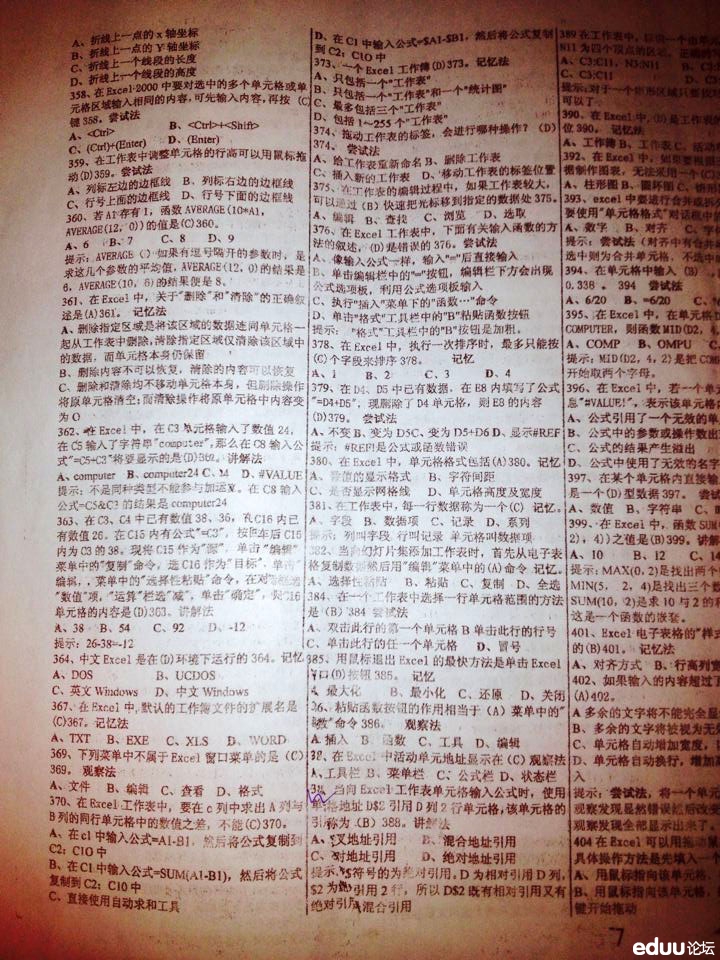 A、折线上一点的 x 轴坐标
B、折线上一点的 Y 轴坐标
C、折线上一个线段的长度
D、折线上一个线段的高度
358、在 Excel 2000 中要对选中的多个单元格或单
元格区域输入相同的内容,可先输入内容,再按 (C)
键 358。尝试法
A、<Ctrl> B、<Ctrl>+<Shift>
C、(Ctrl)+(Enter) D、(Enter)
359、在工作表中调整单元格的行高可以用鼠标拖
动(D)359。尝试法
A、列标左边的边框线 B、列标右边的边框线
C、行号上面的边框线 D、行号下面的边框线
360、若 A1 存有 1, 函数 AVERAGE(10*A1,
AVERAGE(12, 0))的值是(C)360。
A、6 B、7 C、8 D、9
提示: AVERAGE () 如果有逗号隔开的参数时, 是
求这几个参数的平均值, AVERAGE(12, 0)的结果是
6, AVERAGE(10, 6)的结果便是 8。
361、在 Excel 中, 关于"删除"和"清除"的正确叙
述是(A)361。 记忆法
A、删除指定区域是将该区域的数据连同单元格一
起从工作表中删除;清除指定区域仅清除该区域中
的数据, 而单元格本身仍保留
B、删除内容不可以恢复, 清除的内容可以恢复
C、删除和清除均不移动单元格本身, 但删除操作
将原单元格清空;而清除操作将原单元格中内容变
为 O
362、在 Excel 中, 在 C3 单元格输入了数值 24,
在 C5 输入了字符串"computer",那么在 C8 输入公
式"=C5+C3"将要显示的是(D)362。讲解法
A、computer B、computer24 C、24 D、#VALUE
提示: 不是同种类型不能参与加运算。在 C8 输入
公式=C5&C3 的结果是 computer24
363、在 C3、C4 中已有数值 38、36, 在 C16 内已
有数值 26。在 C15 内有公式"=C3", 按回车后 C15
内为 C3 的 38。现将 C15 作为"源", 单击"编辑"
菜单中的"复制"命令, 选 C16 作为"目标", 单击
编辑, , 菜单中的"选择性粘贴"命令, 在对
"数值"项, "运算"栏选"减", 单击"确定", 则C16
单元格的内容是(D)363。讲解法
A、38 B、54 C、92 D、-12
提示: 26-38=-12
364、中文 Excel 是在(D)环境下运行的 364。记忆
A、DOS B、UCDOS
C、英文 Windows D、中文 Windows
367、在 Excel 中, 默认的工作簿文件的扩展名是
(C)367。记忆法
A、TXT B、EXE C、XLS D、WORD
369、下列菜单中不属于 Excel 窗口菜单的是 (C)
369。 观察法
A、文件 B、编辑 C、查看 D、格式
370、在 Excel 工作表中, 要在 c 列中求出 A 列与
B 列的同行单元格中的数值之差, 不能(C)370。
A、在 c1 中输入公式=A1-B1, 然后将公式复制到
C2: C10 中
B、在 C1 中输入公式=SUM(A1-B1), 然后将公式
复制到 C2: C10 中
C、直接使用自动求和工具
D、在 C1 中输入公式=$A1-$B1, 然后将公式复制
到 C2: C10 中
373、一个 Excel 工作簿(D)373。记忆法
A、只包括一个"工作表"
B、只包括一个"工作表"和一个"统计图"
C、最多包括三个"工作表"
D、包括 1~255 个"工作表"
374、拖动工作表的标签, 会进行哪种操作? (D)
374。 尝试法
A、给工作表重新命名 B、删除工作表
C、插入新的工作表 D、移动工作表的标签位置
375、在工作表的编辑过程中, 如果工作表较大,
可以通过 (B) 快速把光标移到指定的数据处 375。
A、编辑 B、查找 C、浏览 D、选取
376、在 Excel 工作表中, 下面有关输入函数的方
法的叙述, (D)是错误的 376。尝试法
A、像输入公式一样, 输入"="后直接输入
B、单击编辑栏中的"="按钮, 编辑栏下方会出现
公式选项板, 利用公式选项板输入
C、执行"插入"菜单下的"函数…"命令
D、单击"格式"工具栏中的"B"粘贴函数按钮
提示: "格式"工具栏中的"B"按钮是加粗。
378、在 Excel 中, 执行一次排序时, 最多只能按
(C)个字段来排序 378。 记忆
A、1 B、2 C、3 D、4
379、在 D4、D5 中已有数据, 在 E8 内填写了公式
"=D4+D5", 现删除了 D4 单元格, 则 E8 的内容
(D)379。 尝试法
A、不变 B、变为 D5C、变为 D5+D6 D、显示#REF
提示: #REF!是公式或函数错误
380、在 Excel 中, 单元格格式包括(A)380。记忆
A、数值的显示格式 B、字符间距
C、是否显示网格线 D、单元格高度及宽度
381、在工作表中, 每一行数据称为一个(C) 记忆。
A、字段 B、数据项 C、记录 D、系列
提示: 列叫字段 行叫记录 单元格叫数据项
382、当向幻灯片集添加工作表时, 首先从电子表
格复制数据然后用"编辑"菜单中的(A)命令 记忆。
A、选择性粘贴 B、粘贴 C、复制 D、全选
384、在一个工作表中选择一行单元格范围的方法
是 (B) 384 尝试法
A、双击此行的第一个单元格 B 单击此行的行号
C、单击此行的任一个单元格 D、冒号
385、用鼠标退出 Excel 的最快方法是单击 Excel
窗口(D)按钮 385。 记忆
A、最大化 B、最小化 C、还原 D、关闭
386、粘贴函数按钮的作用相当于 (A) 菜单中的"
函数"命令 386。 观察法
A、插入 B、函数 C、工具 D、编辑
38、在 Excel 中活动单元地址显示在 (C) 观察法
A、工具栏 B、菜单栏 C、公式栏 D、状态栏
38、当向 Excel 工作表单元格输入公式时, 使用
单元格地址 D$2 引用 D 列 2 行单元格, 该单元格的
引称为 (B) 388。讲解法
A、交叉地址引用 B、混合地址引用
C、相对地址引用 D、绝对地址引用
提示, $符号的为绝对引用。D 为相对引用 D 列,
$2 为绝对引用 2 行, 所以 D$2 既有相对引用又有
绝对引用 混合引用
389 在工作表中, 标识一个由单元
N11 为四个顶点的区域, 正确的
A、C3:C11, N3:N11 B、C3:
C、C3:C11 D、C
提示:对于一个矩形区域只要找
可以了
390、在 Excel 中, (D)是工作表的
位 390。记忆法
A、工作簿 B、工作表 C、活动
392、在 Excel 中, 如果要根据
据制作图表, 无法采用一个(C)
A、柱形图 B、圆环图 C、饼形
393、excel 中要进行合并或拆
要使用"单元格格式"对话框中
A、数字 B、对齐 C、字
提示: 尝试法 (对齐中有合并
选中则为合并单元格, 不选中
394、在单元格中输入 (B)
0.338 。 394 尝试法
A、6/20 B、=6/20 C、
395、在 Excel 中, 在单元格 D
COMPUTER, 则函数 MID(D2, 4,
A、COMP B、OMPU C、
提示: MID(D2, 4, 2)是把 COM
开始取两个字母。
396、在 Excel 中, 若一个单
息"#VALUE!", 表示该单元格内
A、公式引用了一个无效的单
B、公式中的参数或操作数出
C、公式的结果产生溢出
D、公式中使用了无效的名字
397、在某个单元格内直接输
是一个(D)型数据 397。 尝试
A、数值 B、字符串 C、时
399、在 Excel 中, 函数 SUM(
2), 4))之值是(B)399。讲解
A、10 B、12 C、14
提示: MAX(0, 2)是找出两个
MIN(5, 2, 4)是找出三个数
SUM(10, 2)是求 10 与 2 的和
这是一个函数的嵌套。
401、Excel 电子表格的"样式
的(B)401。记忆法
A、对齐方式 B、行高列宽
402、如果输入的内容超过了
(A)402。
A 多余的文字将不能完全显
B、多余的文字将被视为无效
C、单元格自动增加宽度,
D、单元格自动换行, 增加高
入
提示: 尝试法, 将一个单元
观察发现显然错误;然后改变
观察发现全部显示出来了。
404 在 Excel 可以用拖动鼠
具体操作方法是先填入一
A、用鼠标指向该单元格,
B、用鼠标指向该单元格,
键开始拖动
7
eduu论坛